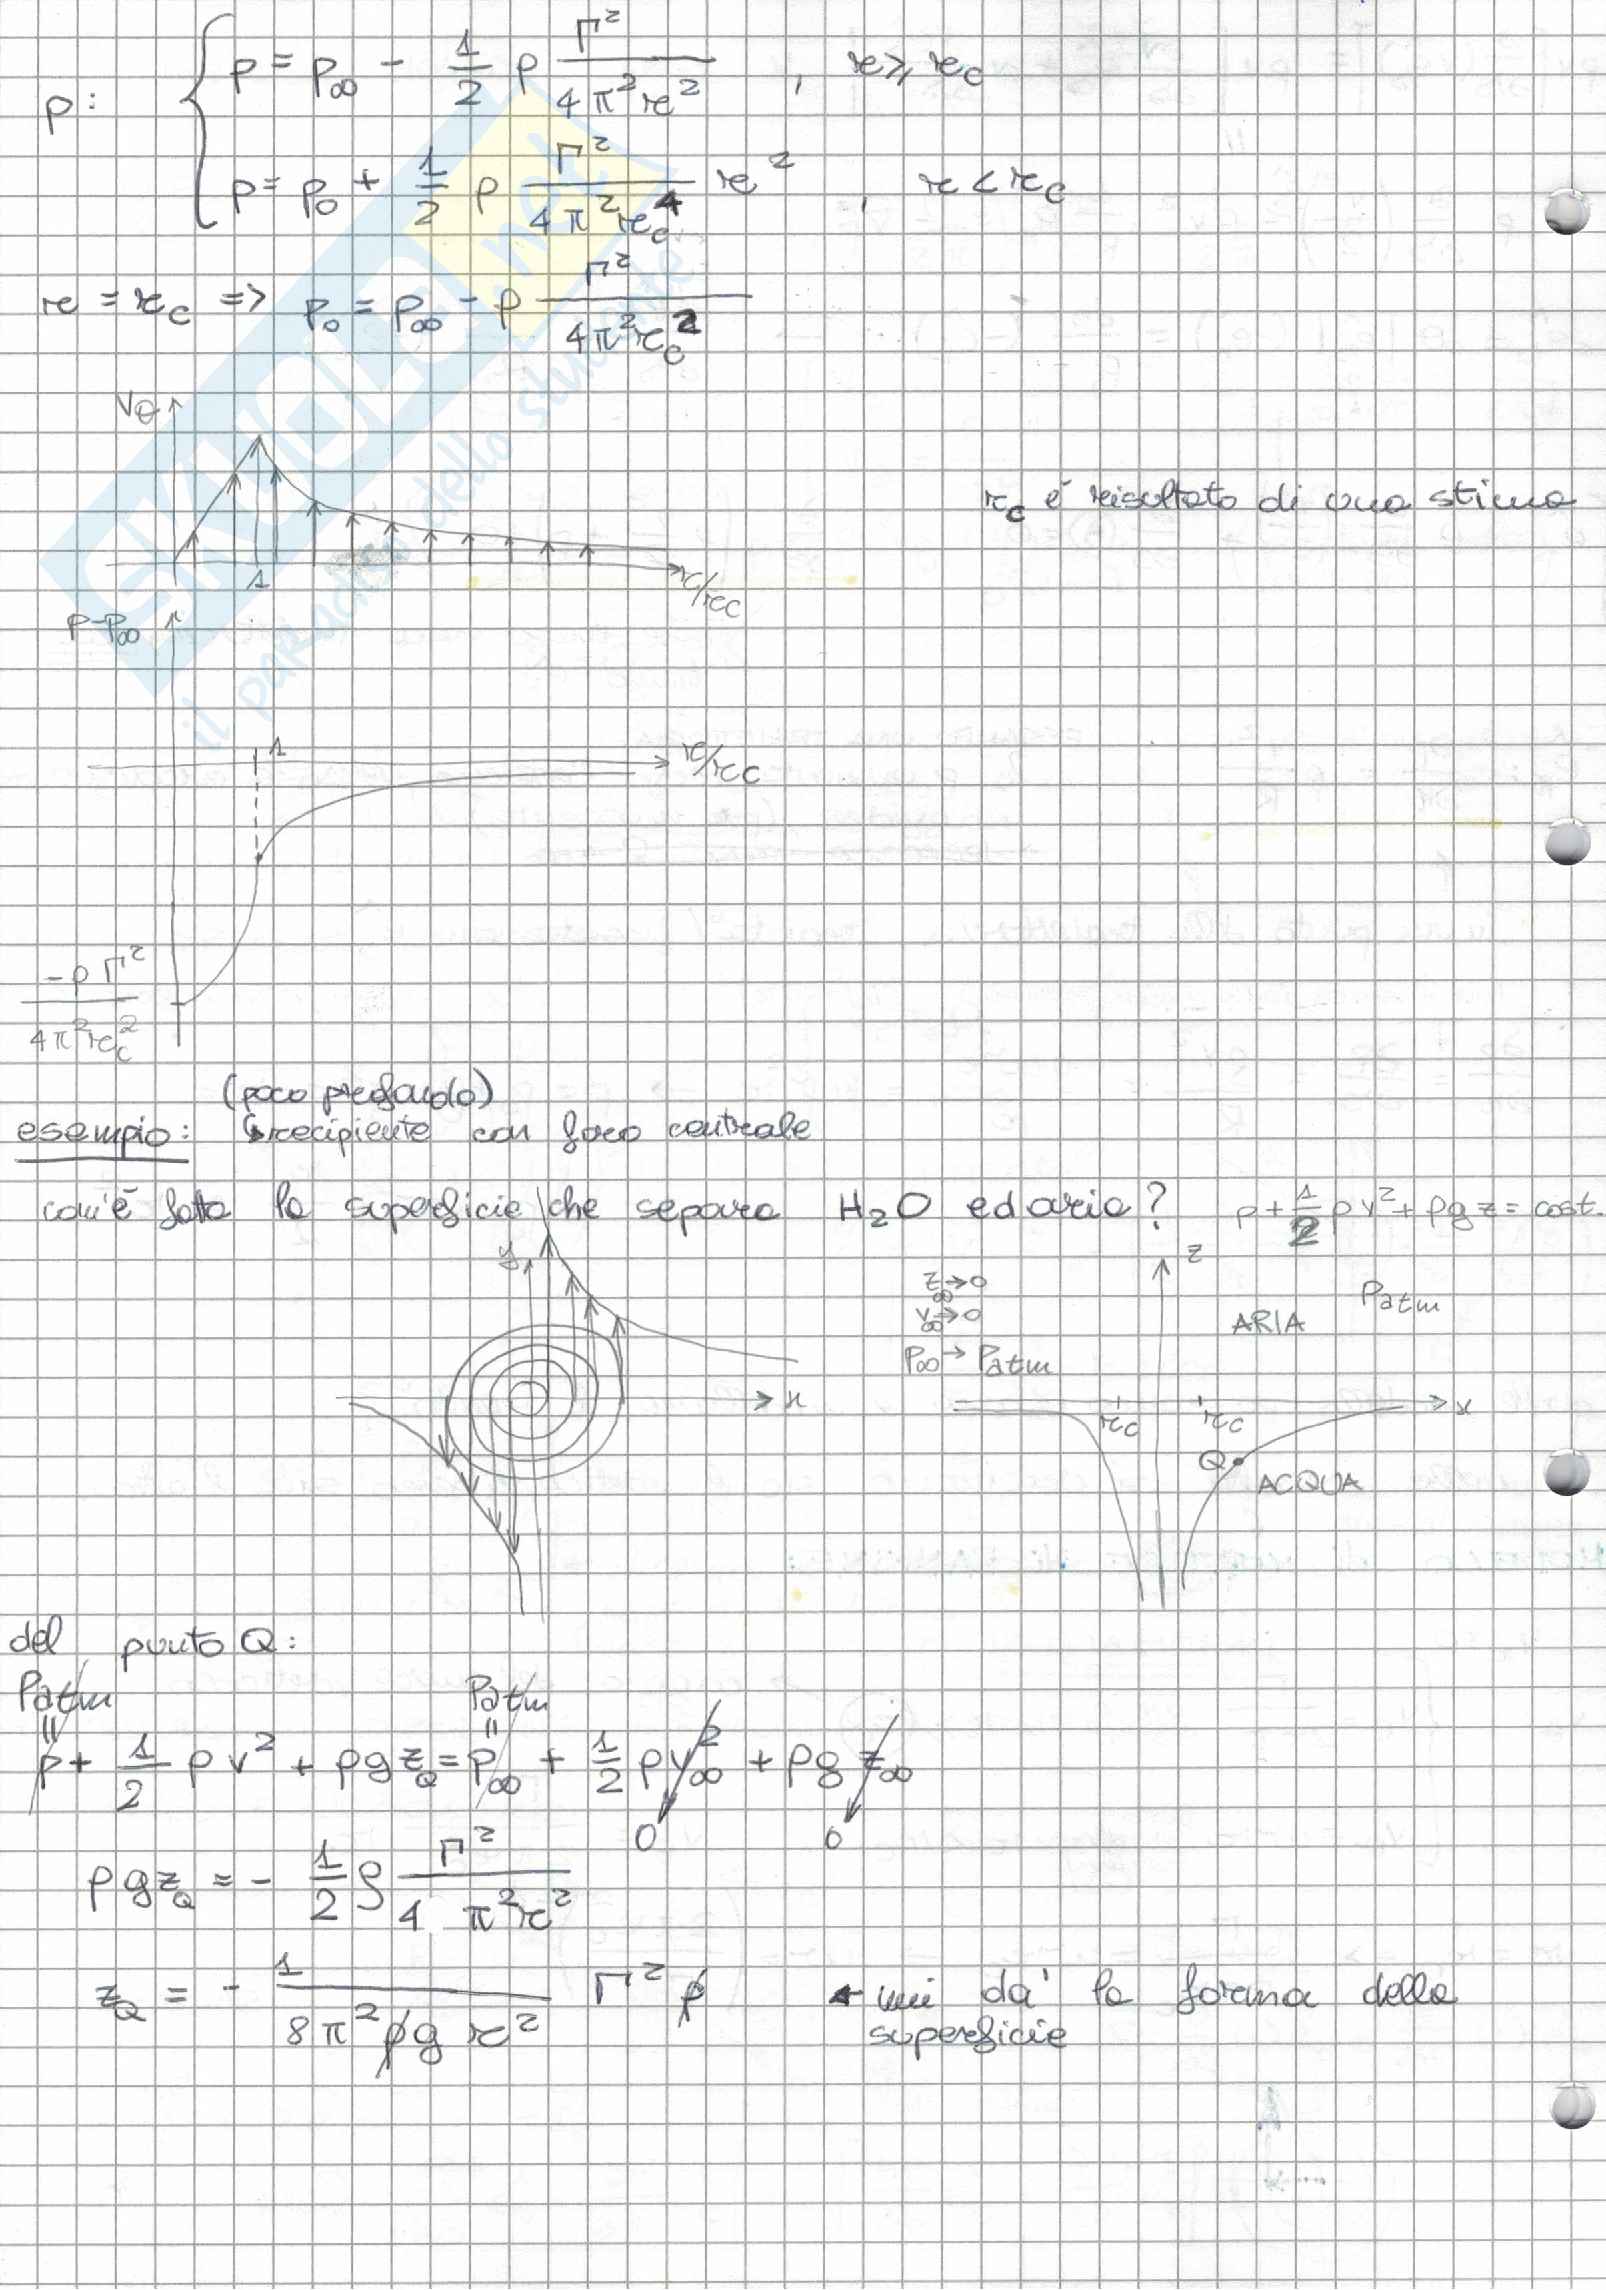 p: { p = p∞ - 1/2 ρ Γ²/(4π²r²) , r ≥ rc
p = p0 + 1/2 ρ Γ²/(4π²rc⁴) r² , r < rc
r = rc => p0 = p∞ - ρ Γ²/(4π²rc²)
Vθ
rc è risultato di una stima
1
r/rc
p-p∞
1
r/rc
-ρΓ²/(4π²rc²)
(poco profondo)
esempio: recipiente con foro centrale
com'è fatta la superficie che separa H2O ed aria? p + 1/2 ρv² + ρgz = cost.
y
x
z∞→0
v∞→0
p∞→Patm
z
ARIA
Patm
rc
rc
x
Q
ACQUA
del punto Q:
Patm Patm
p + 1/2 ρv² + ρgzQ = p∞ + 1/2 ρv∞² + ρgz∞
0 0
ρgzQ = - 1/2 ρ Γ²/(4π²r²)
zQ = - 1/(8π²ρgr²) Γ²ρ ← mi dà la forma della
superficie
SKUOLA.net
il paradiso dello studente